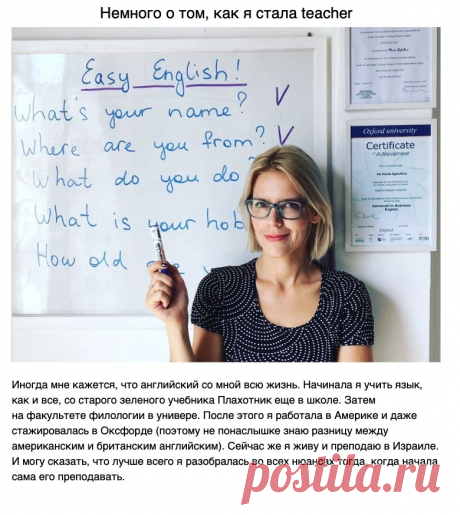 Немного о том, как я стала teacher
Easy English!
What's your name?
Where are you from?
What do you do?
What is your hob
How old
Oxford university
Certificate
of Achievement
Advanced in Business
English
Oxford
Иногда мне кажется, что английский со мной всю жизнь. Начинала я учить язык,
как и все, со старого зеленого учебника Плахотник еще в школе. Затем
на факультете филологии в универе. После этого я работала в Америке и даже
стажировалась в Оксфорде (поэтому не понаслышке знаю разницу между
американским и британским английским). Сейчас же я живу и преподаю в Израиле.
И могу сказать, что лучше всего я разобралась во всех нюансах тогда, когда начала
сама его преподавать.
postila.ru